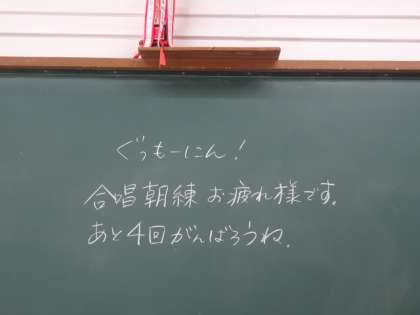 ぐっもーにん!
合唱朝練お疲れ様です。
あと4回がんばろうね.